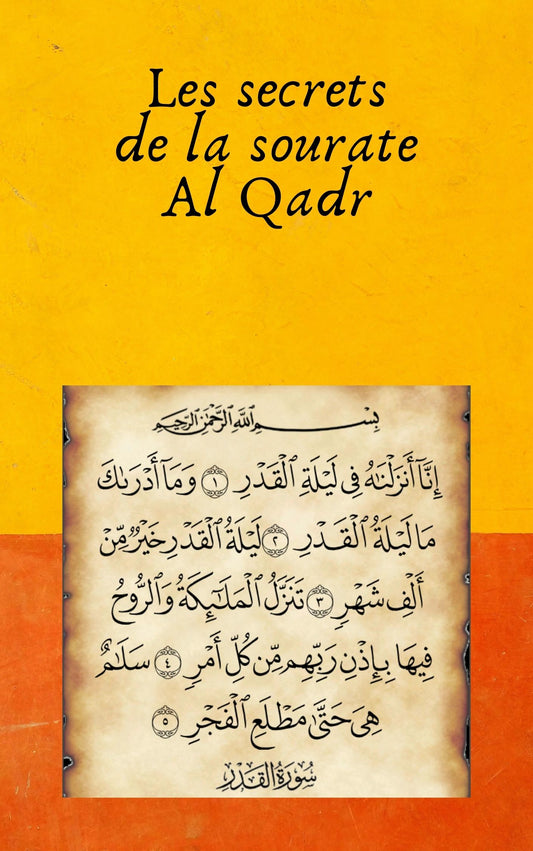 Les secrets
de la sourate
Al Qadr
بِسْمِ ٱللَّهِ ٱلرَّحْمَٰنِ ٱلرَّحِيمِ
إِنَّآ أَنزَلْنَٰهُ فِى لَيْلَةِ ٱلْقَدْرِ ١ وَمَآ أَدْرَىٰكَ
مَا لَيْلَةُ ٱلْقَدْرِ ٢ لَيْلَةُ ٱلْقَدْرِ خَيْرٌ مِّنْ
أَلْفِ شَهْرٍ ٣ تَنَزَّلُ ٱلْمَلَٰٓئِكَةُ وَٱلرُّوحُ
فِيهَا بِإِذْنِ رَبِّهِم مِّن كُلِّ أَمْرٍ ٤ سَلَٰمٌ
هِىَ حَتَّىٰ مَطْلَعِ ٱلْفَجْرِ ٥
سُورَةُ القَدْرِ